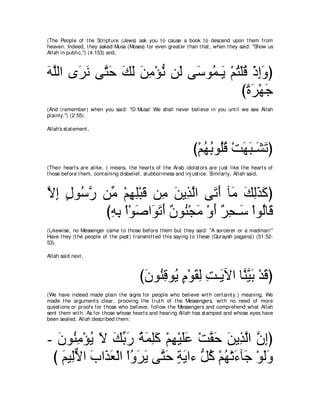 (The People of the Scripture (Jews) ask you to cause a book to descend upon them from
heaven. Indeed, they asked Musa (Moses) for even greater than that, when they said: "Show us
Allah in public,'') (4:153) and,
﴿وَإِذْ قُلْتُمْ يَـمُوسَى لَن نُّؤْمِنَ لَكَ حَتَّى نَرَى اللَّهَ
جَهْرَةً﴾
(And (remember) when you said: "O Musa! We shall never believe in you until we see Allah
plainly.'') (2:55).
Allah's statement,
﴿تَشَـبَهَتْ قُلُوبُهُمْ﴾
(Their hearts are alike. ) means, the hearts of the Arab idolators are just like the hearts of
those before them, containing disbelief, stubbornness and injustice. Similarly, Allah said,
﴿كَذَلِكَ مَآ أَتَى الَّذِينَ مِن قَبْلِهِمْ مِّن رَّسُولٍ إِلاَّ
قَالُوا سَـحِرٌ أَوْ مَجْنُونٌ أَتَوَاصَوْاْ بِهِ﴾
(Likewise, no Messenger came to those before them but they said: "A sorcerer or a madman!''
Have they (the people of the past) transmitted this saying to these (Quraysh pagans)) (51:52-
53).
Allah said next,
﴿قَدْ بَيَّنَّا الآيَـتِ لِقَوْمٍ يُوقِنُونَ﴾
(We have indeed made plain the signs for people who believe with certainty.) meaning, We
made the arguments clear, prooving the truth of the Messengers, with no need of more
questions or proofs for those who believe, follow the Messengers and comprehend what Allah
sent them with. As for those whose hearts and hearing Allah has stamped and whose eyes have
been sealed, Allah described them:
﴿إِنَّ الَّذِينَ حَقَّتْ عَلَيْهِمْ كَلِمَةُ رَبِّكَ لاَ يُؤْمِنُونَ -
وَلَوْ جَآءَتْهُمْ كُلُّ ءايَةٍ حَتَّى يَرَوُاْ الْعَذَابَ الاٌّلِيمَ ﴾